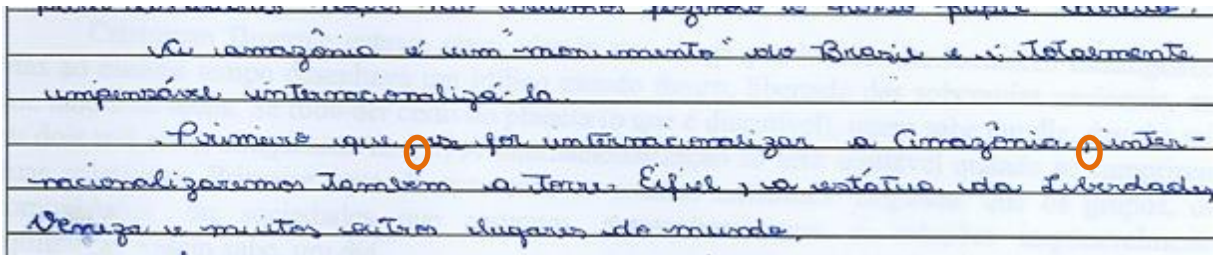 A amazônia é um "monumento" do Brasil e é totalmente
impensável internacionalizá-la.
Primeiro que, se for internacionalizar a Amazônia, inter-
nacionalizaremos também a Torre Eifiel, a estátua da Liberdade,
Veneza e muitos outros lugares do mundo.